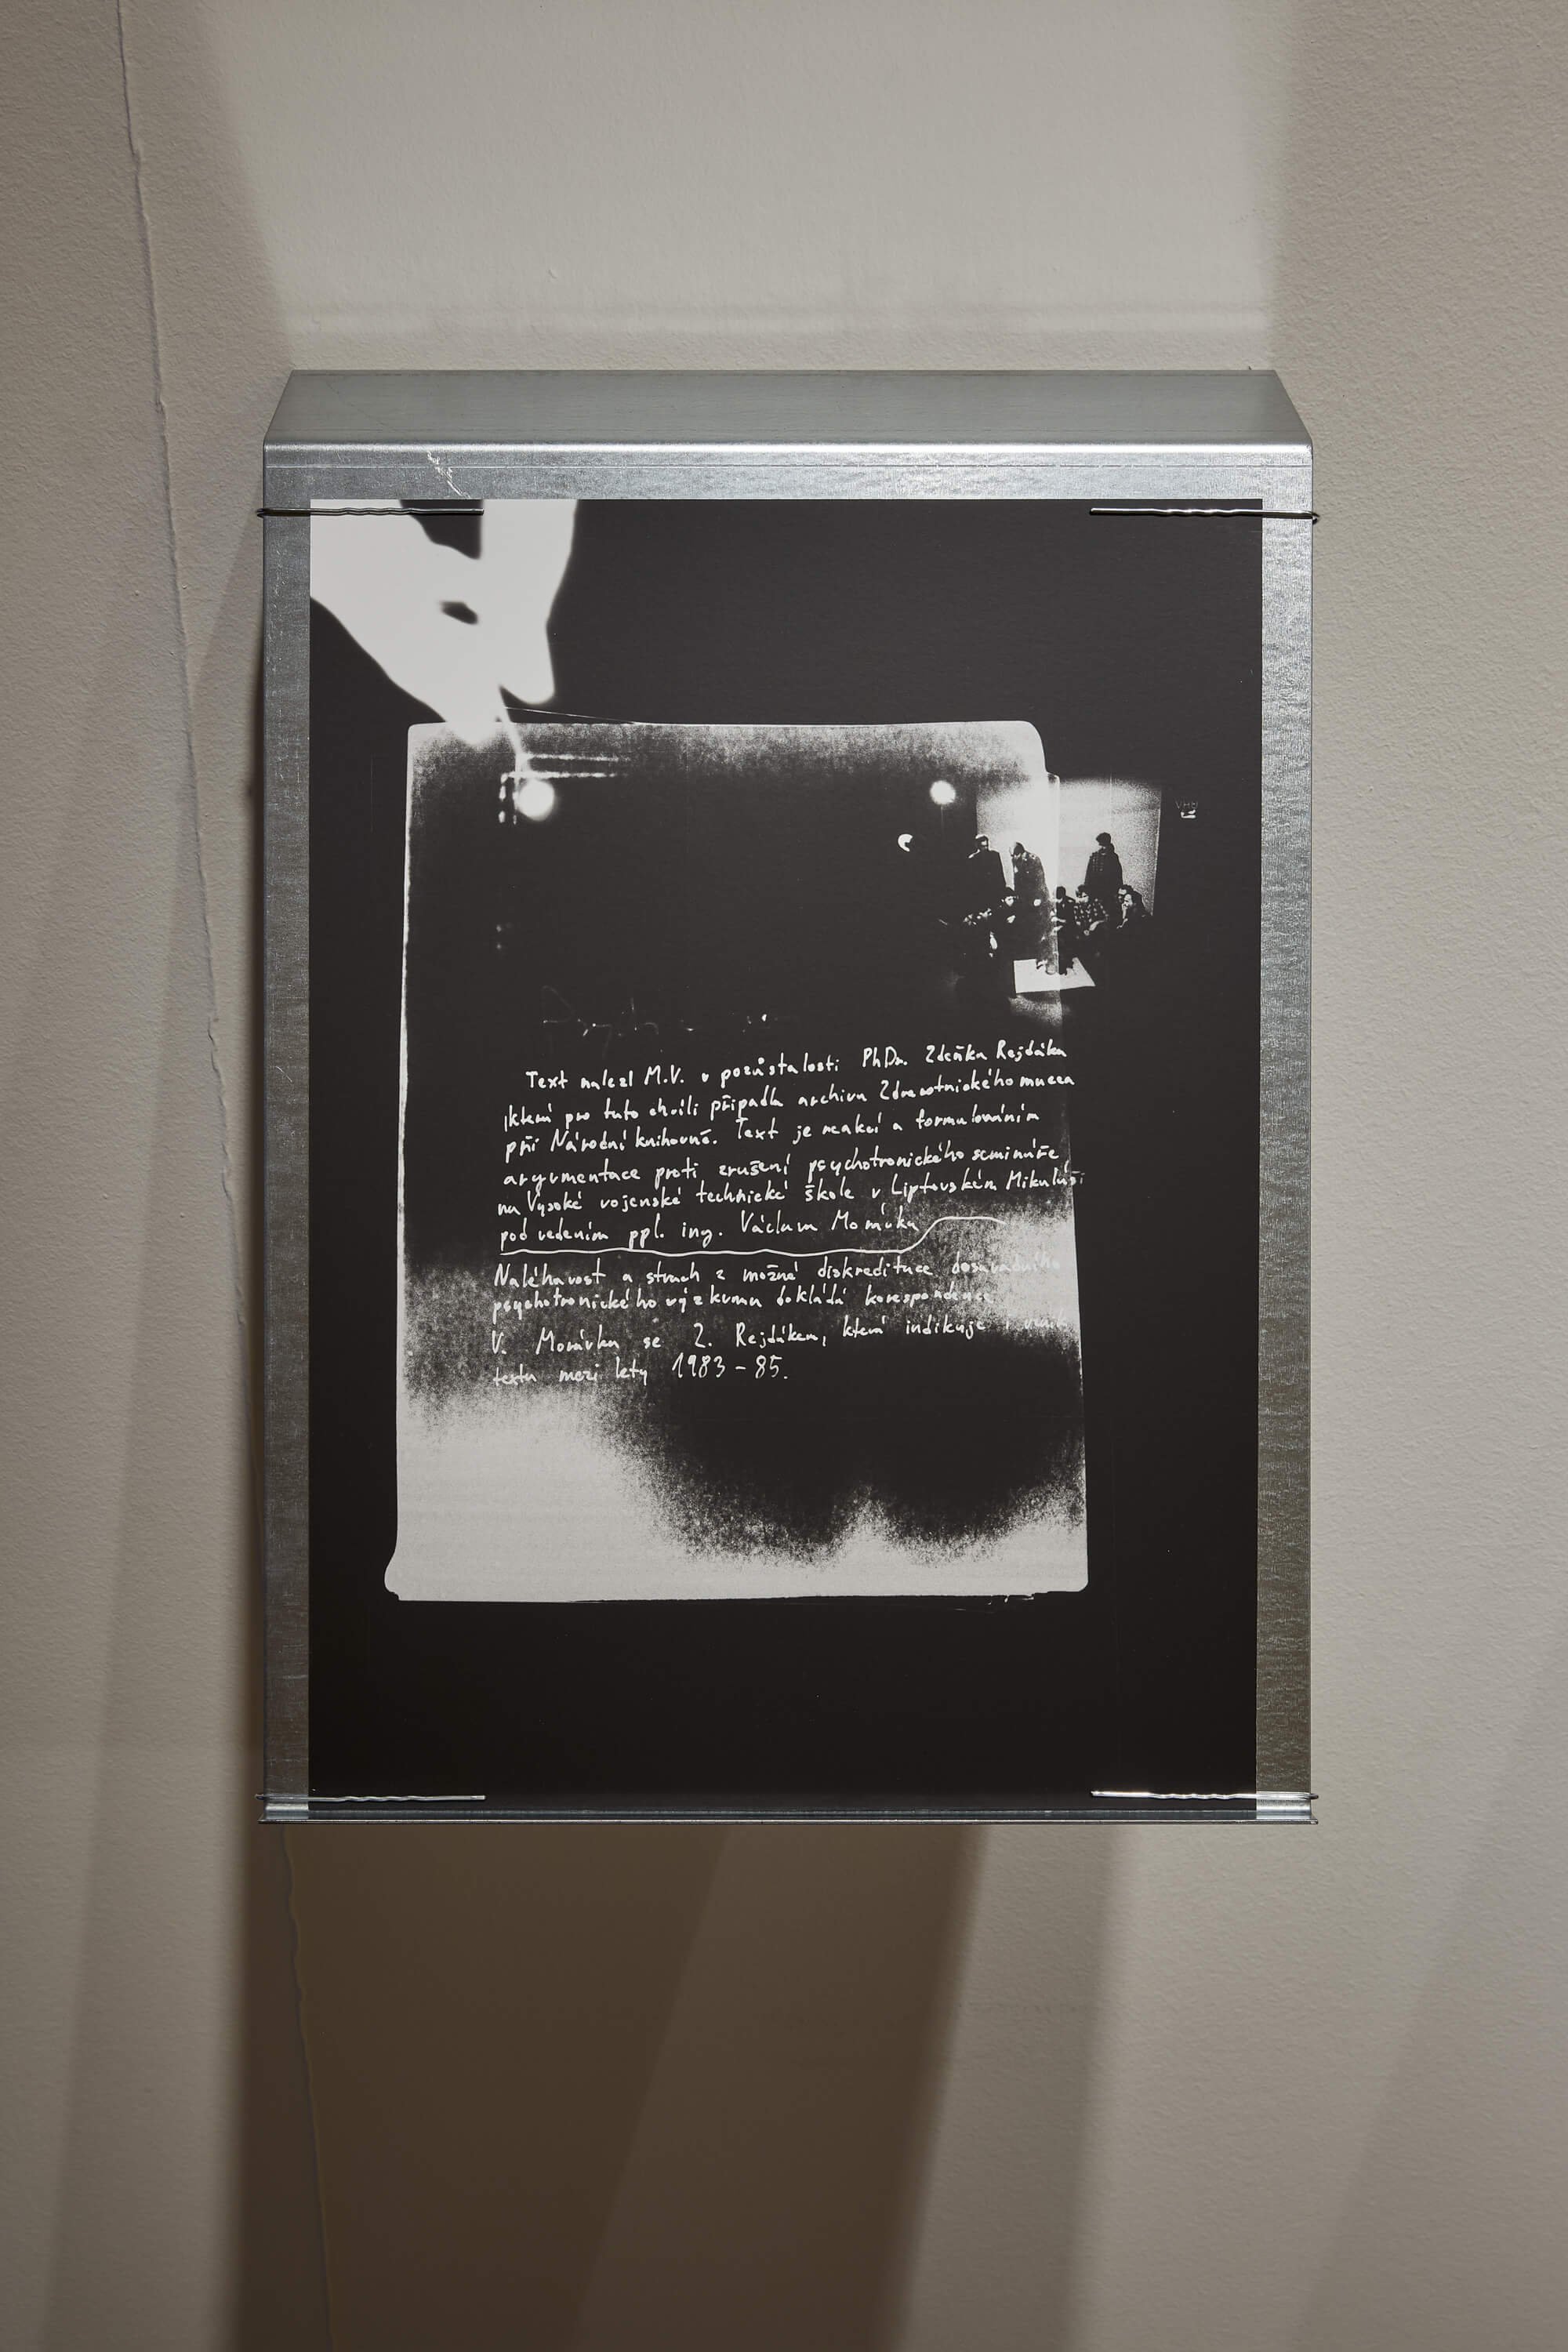 Text nalezl M.V. v pozůstalosti PhDr. Zdeňka Rejdáka
která pro tuto chvíli připadla archivu Zdravotnického muzea
při Národní knihovně. Text je reakcí a formulováním
argumentace proti zrušení psychotronického semináře
na Vysoké vojenské technické škole v Liptovském Mikuláši
pod vedením ppl. ing. Václava Morávka
Naléhavost a strach z možné diskreditace dosavadního
psychotronického výzkumu dokládá korespondence
V. Morávka se Z. Rejdákem, která indikuje i vznik
textu mezi lety 1983 - 85.